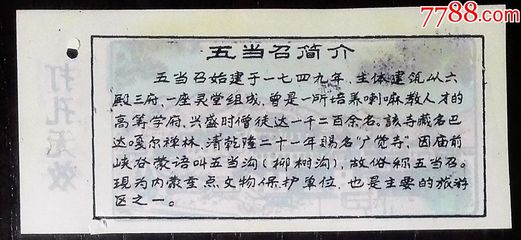 7788.com
五当召简介
五当召始建于一七四九年，主体建筑从六
殿三府，一座灵堂组成，曾是一所培养喇嘛教人才的
高等学府，兴盛时僧徒达一千二百余名。該寺藏名巴
达嘎尔禅林，清乾隆二十一年赐名"广觉寺"，因庙前
峡谷蒙语叫五当沟（柳树沟），故俗称五当召。
现为内蒙重点文物保护单位，也是主要的旅游
区之一。
打孔无效